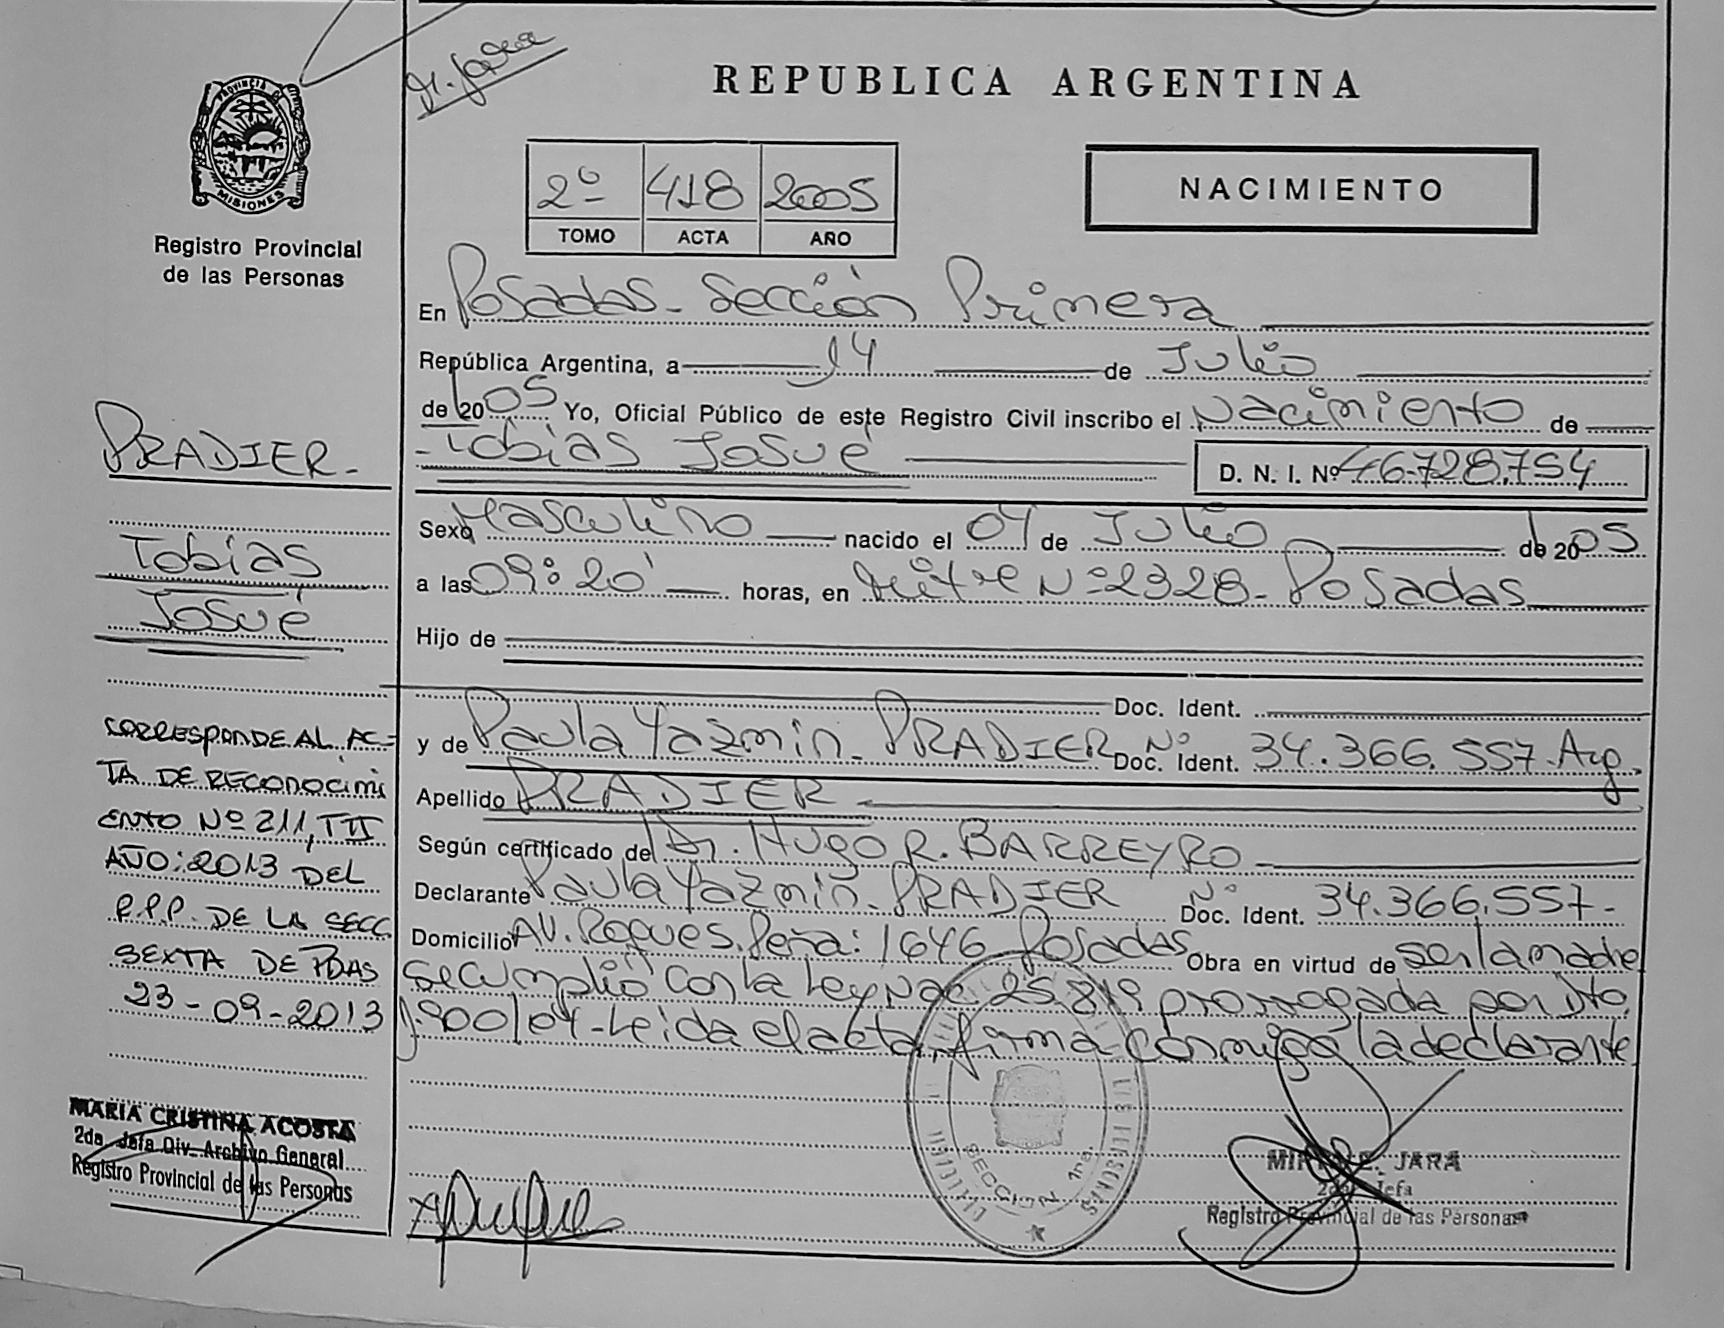 M. Jara
REPUBLICA ARGENTINA
PROVINCIA DE
MISIONES
Registro Provincial
de las Personas
2º 418 2005
TOMO ACTA AÑO
NACIMIENTO
En Posadas - Sección Primera
República Argentina, a 14 de Julio
de 2005 Yo, Oficial Público de este Registro Civil inscribo el Nacimiento de
Tobías Josué
D. N. I. Nº 46.728.754
Sexo Masculino nacido el 04 de Julio de 2005
a las 09:20' horas, en Mitre Nº 2328 - Posadas
Hijo de
Doc. Ident.
y de Paula Yazmin - PRADIER Doc. Ident. Nº 34.366.557 - Arg.
Apellido PRADIER
Según certificado de Dr. Hugo R. BARREYRO
Declarante Paula Yazmin - PRADIER Doc. Ident. Nº 34.366.557 -
Domicilio Av. Roque S. Peña: 1646 Posadas Obra en virtud de ser la madre
se cumplió con la Ley Nac 25.819 prorrogada por Dto.
1.900/04 - Leida el acta, firma conmigo la declarante
PRADIER -
Tobías
Josué
CORRESPONDE AL AC-
TA DE RECONOCIMI
ENTO Nº 211, TIII
AÑO: 2013 DEL
R.P.P. DE LA SECC
SEXTA DE PDAS
23-09-2013
MARIA CRISTINA ACOSTA
2da. Jefa Div. Archivo General
Registro Provincial de las Personas
SECCION 1ra.
JARA
Jefa
Registro Provincial de las Personas